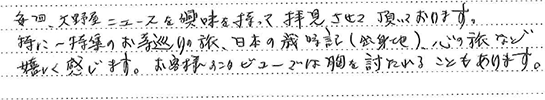 毎回、大野屋ニュースを興味を持って拝見させて頂いております。
特に一特集のお寺巡りの旅、日本の歳時記()、心の旅など
嬉しく感じます。お客様インタビューでは胸を討たれることもあります。